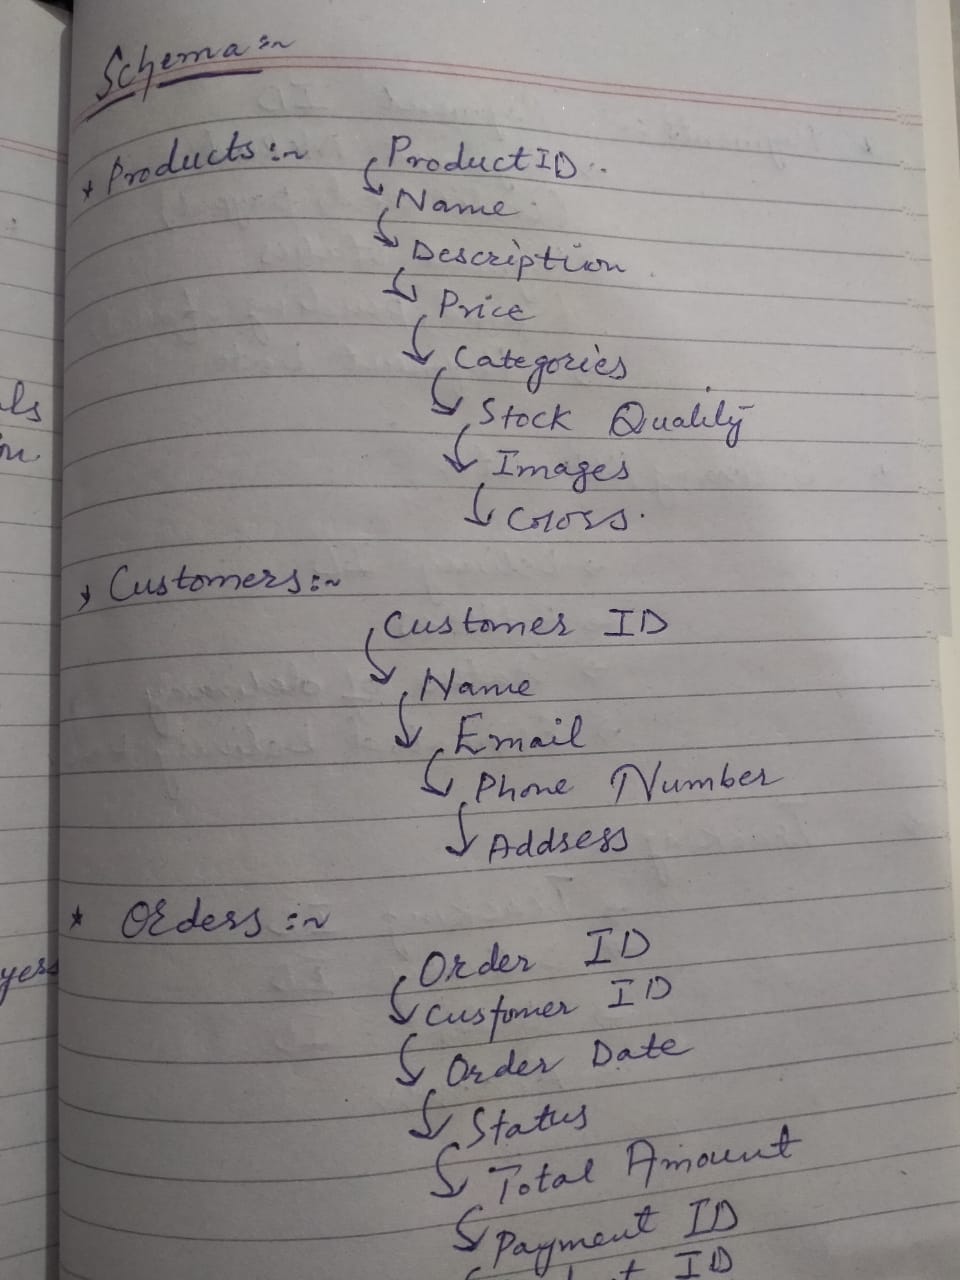 Schema :~
* Products :~ ProductID
Name
Description
Price
Categories
Stock Quality
Images
Colors
* Customers :~
Customer ID
Name
Email
Phone Number
Address
* Orders :~
Order ID
Customer ID
Order Date
Status
Total Amount
Payment ID
ID